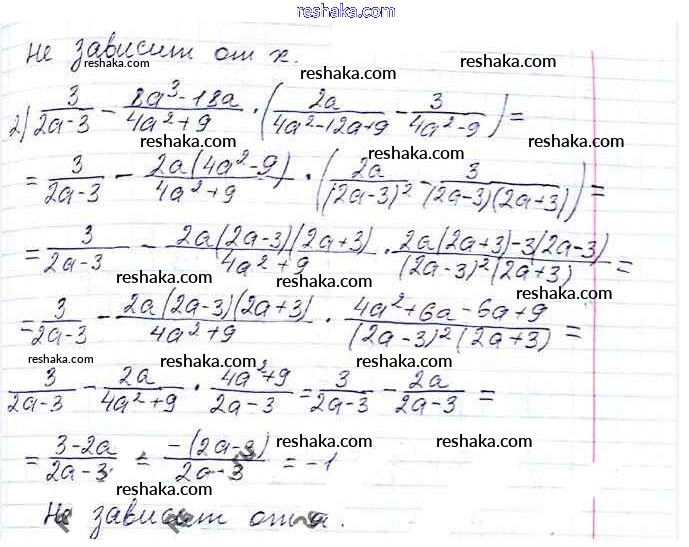 reshaka.com
Не зависит от x.
reshaka.com reshaka.com reshaka.com
2) 3/(2a-3) - (8a³-18a)/(4a²+9) · (2a/(4a²-12a+9) - 3/(4a²-9)) =
reshaka.com reshaka.com reshaka.com
= 3/(2a-3) - 2a(4a²-9)/(4a²+9) · (2a/(2a-3)² - 3/((2a-3)(2a+3))) =
reshaka.com reshaka.com reshaka.com
= 3/(2a-3) - 2a(2a-3)(2a+3)/(4a²+9) · (2a(2a+3)-3(2a-3))/((2a-3)²(2a+3)) =
reshaka.com reshaka.com reshaka.com
= 3/(2a-3) - 2a(2a-3)(2a+3)/(4a²+9) · (4a²+6a-6a+9)/((2a-3)²(2a+3)) =
reshaka.com reshaka.com reshaka.com
3/(2a-3) - 2a/(4a²+9) · (4a²+9)/(2a-3) = 3/(2a-3) - 2a/(2a-3) =
reshaka.com reshaka.com reshaka.com
= (3-2a)/(2a-3) = -(2a-3)/(2a-3) = -1
reshaka.com reshaka.com reshaka.com
Не зависит от a.